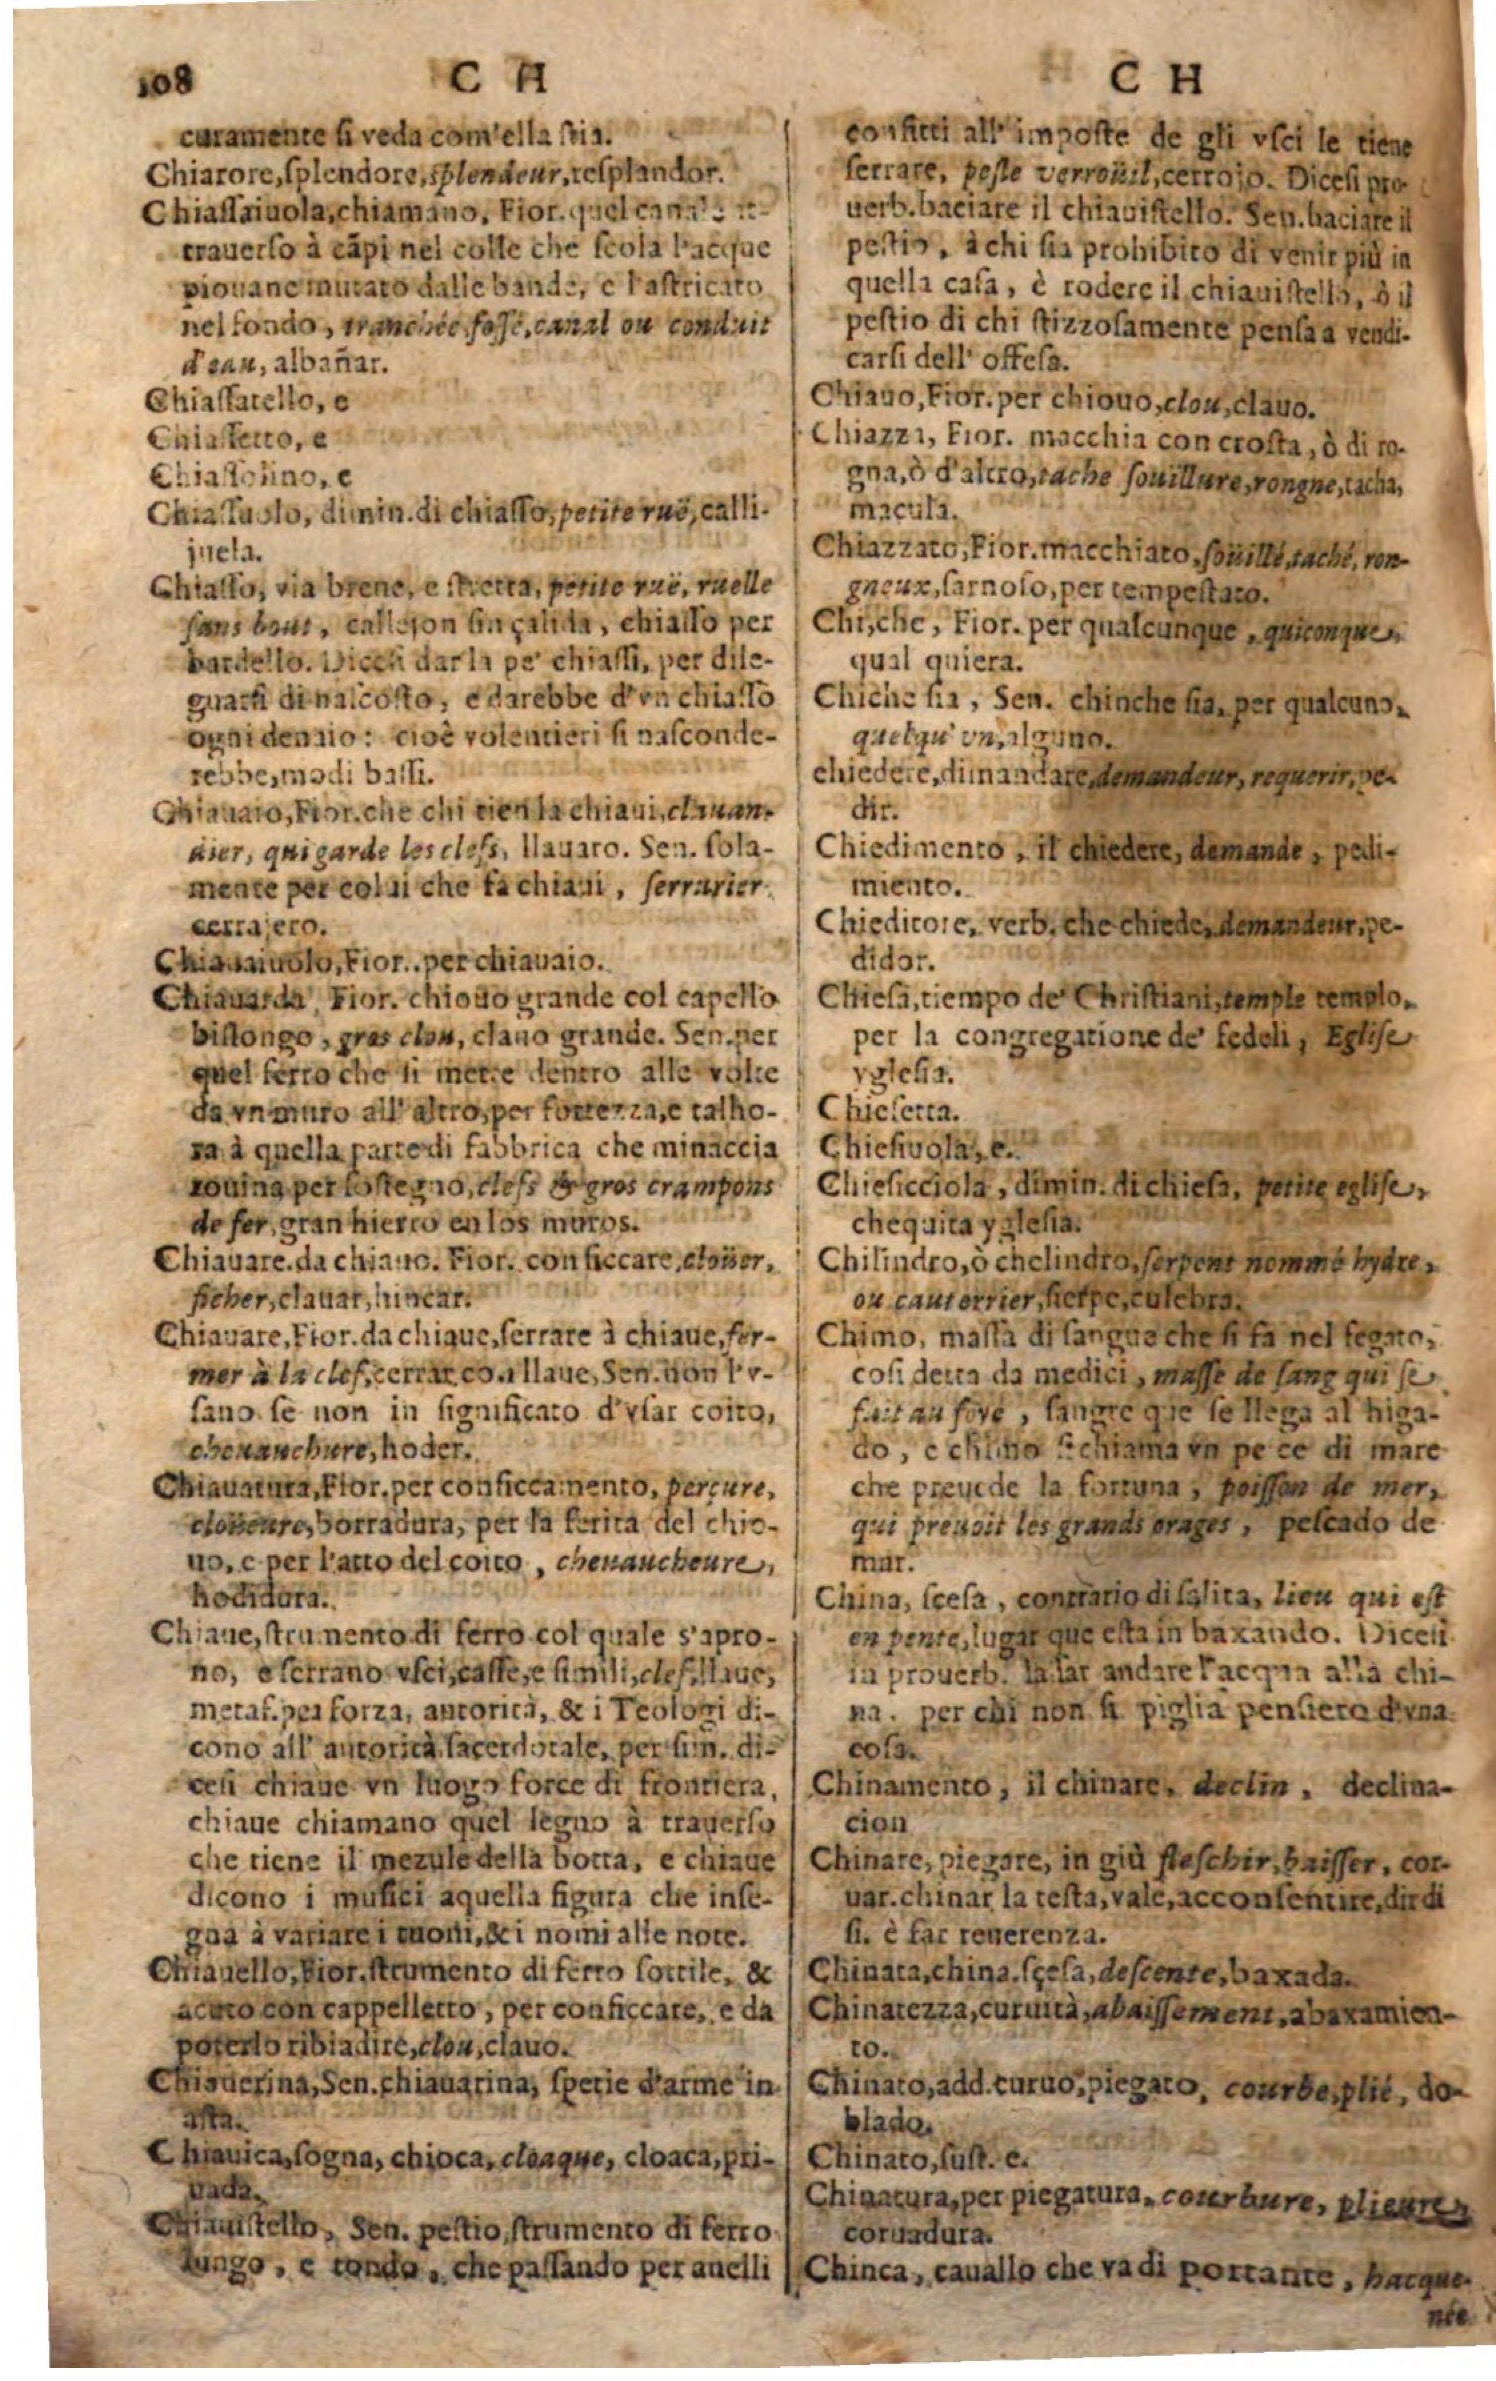 108 C H
curamente ſi veda com'ella ſtia.
Chiarore, ſplendore, ſplendeur, reſplandor.
Chiaſſaiuola, chiamano, Fior. quel canale at-
trauerſo à cãpi nel colle che ſcola l'acque
piouane murato dalle bande, e laſtricato
nel fondo, tranchée foſſé, canal ou conduit
d'eau, albañar.
Chiaſſatello, e
Chiaſſetto, e
Chiaſſolino, e
Chiaſſuolo, dimin. di chiaſſo, petite ruë, calli-
juela.
Chiaſſo, via breue, e ſtretta, petite ruë, ruelle
ſans bout, callejon ſin çalida, chiaſſo per
bardello. Diceſi darla pe' chiaſſi, per dile-
guarſi di naſcoſto, e darebbe d'vn chiaſſo
ogni denaio: cioè volentieri ſi naſconde-
rebbe, modi baſſi.
Chiauaio, Fior. che chi tien la chiaui, clauan-
dier, qui garde les clefs, llauaro. Sen. ſola-
mente per colui che fa chiaui, ſerrurier
cerrajero.
Chiauaiuolo, Fior. per chiauaio.
Chiauarda, Fior. chiouo grande col capello
biſlongo, gros clou, clauo grande. Sen. per
quel ferro che ſi mette dentro alle volte
da vn muro all'altro, per fortezza, e talho-
ra à quella parte di fabbrica che minaccia
rouina per ſoſtegno, clefs & gros crampons
de fer, gran hierro en los muros.
Chiauare. da chiauo. Fior. conficcare, cloüer,
ficher, clauar, hincar.
Chiauare, Fior. da chiaue, ſerrare à chiaue, fer-
mer à la clef, cerrar con llaue, Sen. non l'v-
ſano ſe non in ſignificato d'vſar coito,
cheuauchure, hoder.
Chiauatura, Fior. per conficcamento, perçure,
cloüeure, borradura, per la ferita del chio-
uo, e per l'atto del coito, cheuaucheure,
hodidura.
Chiaue, ſtrumento di ferro col quale s'apro-
no, e ſerrano vſci, caſſe, e ſimili, clef, llaue,
metaf. per forza, autorità, & i Teologi di-
cono all' autorità ſacerdotale, per ſim. di-
ceſi chiaue vn luogo forte di frontiera,
chiaue chiamano quel legno à trauerſo
che tiene il mezule della botta, e chiaue
dicono i muſici aquella figura che inſe-
gna à variare i tuoni, & i nomi alle note.
Chiauello, Fior. ſtrumento di ferro ſottile, &
acuto con cappelletto, per conficcare, e da
poterlo ribiadire, clou, clauo.
Chiauerina, Sen. chiauarina, ſpetie d'arme in
aſta.
Chiauica, fogna, chioca, cloaque, cloaca, pri-
uada.
Chiauiſtello, Sen. peſtio, ſtrumento di ferro
lungo, e tondo, che paſſando per anelli
C H
confitti all' impoſte de gli vſci le tiene
ſerrare, peſle verroüil, cerrojo. Diceſi pro-
uerb. baciare il chiauiſtello. Sen. baciare il
peſtio, à chi ſia prohibito di venir più in
quella caſa, è rodere il chiauiſtello, ò il
peſtio di chi ſtizzoſamente penſa a vendi-
carſi dell' offeſa.
Chiauo, Fior. per chiouo, clou, clauo.
Chiazza, Fior. macchia con croſta, ò di ro-
gna, ò d'altro, tache ſouillure, rongne, tacha,
macula.
Chiazzato, Fior. macchiato, ſoüillé, taché, ron-
gneux, ſarnoſo, per tempeſtato.
Chi, che, Fior. per qualcunque, quiconque,
qual quiera.
Chiche ſia, Sen. chinche ſia, per qualcuno,
quelqu' vn, alguno.
chiedere, dimandare, demandeur, requerir, pe-
dir.
Chiedimento, il chiedere, demande, pedi-
miento.
Chieditore, verb. che chiede, demandeur, pe-
didor.
Chieſa, tiempo de' Chriſtiani, temple templo,
per la congregatione de' fedeli, Egliſe
ygleſia.
Chieſetta.
Chieſiuola, e.
Chieſicciola, dimin. di chieſa, petite egliſe,
chequita ygleſia.
Chilindro, ò chelindro, ſerpent nommé hydre,
ou cauterrier, ſierpe, culebra.
Chimo, maſſa di ſangue che ſi fa nel fegato,
coſi detta da medici, maſſe de ſang qui ſe
fait au foye, ſangre que ſe llega al higa-
do, e chimo ſi chiama vn peſce di mare
che preuede la fortuna, poiſſon de mer,
qui preuoit les grands orages, peſcado de
mar.
China, ſceſa, contrario di ſalita, lieu qui eſt
en pente, lugar que eſta in baxando. Diceſi
in prouerb. laſſar andare l'acqua alla chi-
na. per chi non ſi piglia penſiero d'vna
coſa.
Chinamento, il chinare, declin, declina-
cion
Chinare, piegare, in giù fleſchir, baiſſer, cor-
uar. chinar la teſta, vale, acconſentire, dir di
ſi. è far reuerenza.
Chinata, china. ſçeſa, deſcente, baxada.
Chinatezza, curuità, abaiſſement, abaxamien-
to.
Chinato, add. curuo, piegato, courbe, plié, do-
blado.
Chinato, ſuſt. e.
Chinatura, per piegatura, courbure, plieure,
coruadura.
Chinca, cauallo che va di portante, hacque-
née